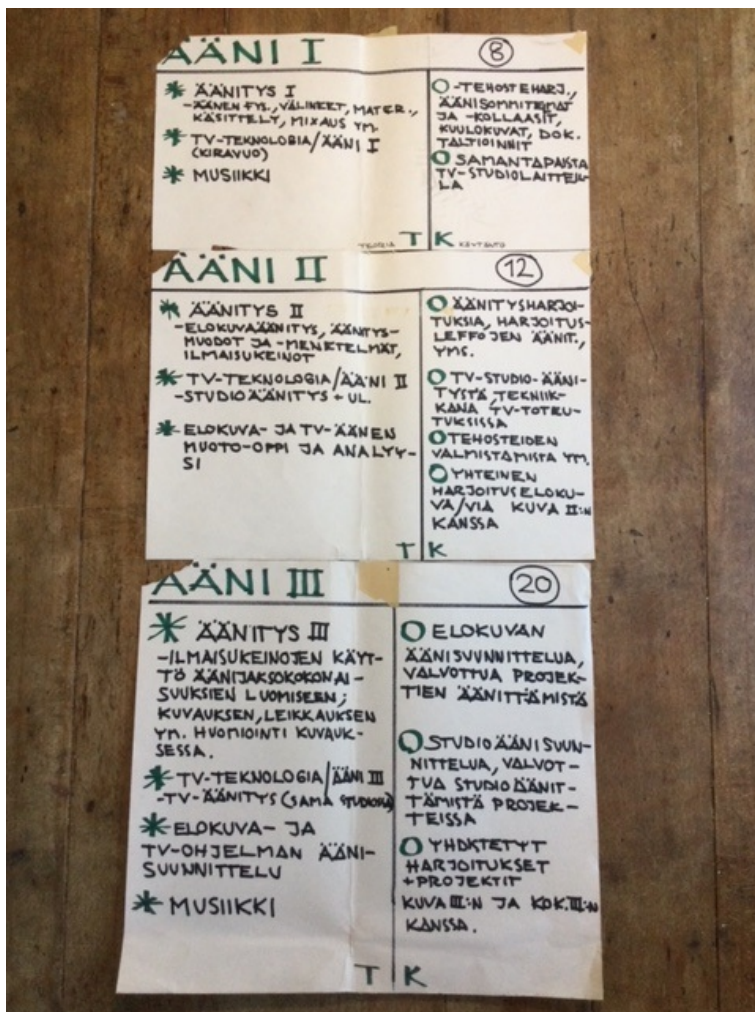 ÄÄNI I
8
* ÄÄNITYS I
-ÄÄNEN FYS., VÄLINEET, MATER.,
KÄSITTELY, MIXAUS YM.
* TV-TEKNOLOGIA/ÄÄNI I
(KIRAVUO)
* MUSIIKKI
TEORIA T
O -TEHOSTEHARJ.,
ÄÄNISOMMITELMAT
JA -KOLLAASIT,
KUULOKUVAT, DOK.
TALTIOINNIT
O SAMANTAPAISTA
TV-STUDIOLAITTEIL-
LA
K KÄYTÄNTÖ
ÄÄNI II
12
* ÄÄNITYS II
-ELOKUVAÄÄNITYS, ÄÄNITYS-
MUODOT JA -MENETELMÄT,
ILMAISUKEINOT
* TV-TEKNOLOGIA/ÄÄNI II
-STUDIOÄÄNITYS + UL.
* ELOKUVA- JA TV-ÄÄNEN
MUOTO-OPPI JA ANALYY-
SI
T
O ÄÄNITYSHARJOI-
TUKSIA, HARJOITUS-
LEFFOJEN ÄÄNIT.,
YMS.
O TV-STUDIO-ÄÄNI-
TYSTÄ, TEKNIIK-
KANA TV-TOTEU-
TUKSISSA
O TEHOSTEIDEN
VALMISTAMISTA YM.
O YHTEINEN
HARJOITUSELOKU-
VA/VIA KUVA II:N
KANSSA
K
ÄÄNI III
20
* ÄÄNITYS III
-ILMAISUKEINOJEN KÄYT-
TÖ ÄÄNIJAKSOKOKONAI-
SUUKSIEN LUOMISEEN;
KUVAUKSEN, LEIKKAUKSEN
YM. HUOMIOINTI KUVAUK-
SESSA.
* TV-TEKNOLOGIA/ÄÄNI III
-TV-ÄÄNITYS (SAMA STUDIOSSA)
* ELOKUVA- JA
TV-OHJELMAN ÄÄNI-
SUUNNITTELU
* MUSIIKKI
T
O ELOKUVAN
ÄÄNISUUNNITTELUA,
VALVOTTUA PROJEK-
TIEN ÄÄNITTÄMISTÄ
O STUDIOÄÄNISUUN-
NITTELUA, VALVOT-
TUA STUDIOÄÄNIT-
TÄMISTÄ PROJEK-
TEISSA
O YHDISTETYT
HARJOITUKSET
+PROJEKTIT
KUVA III:N JA KOK.III:N
KANSSA.
K